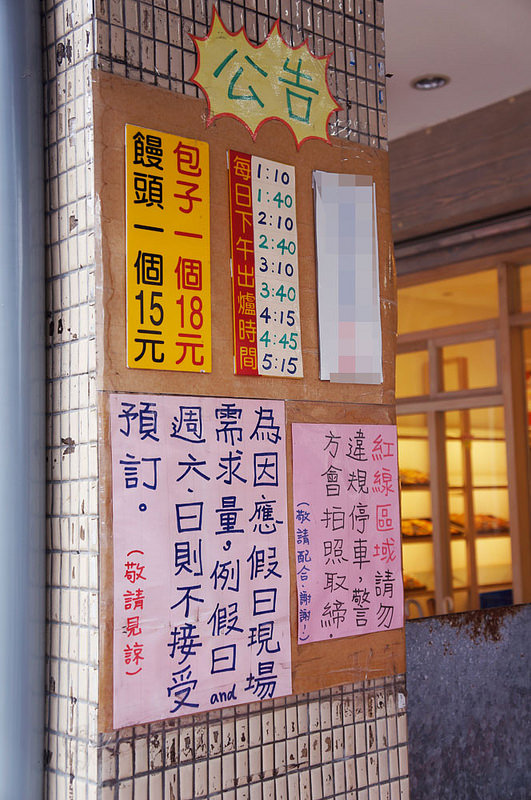 公告
包子一個18元
饅頭一個15元
每日下午出爐時間
1:10
1:40
2:10
2:40
3:10
3:40
4:15
4:45
5:15
為因應假日現場
需求量,例假日and
週六.日則不接受
預訂。
(敬請見諒)
紅線區域請勿
違規停車,警
方會拍照取締.
(敬請配合.謝謝!)